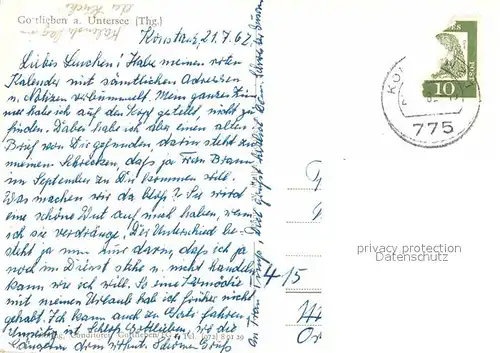 Gottlieben a. Untersee (Thg.)
Konstanz, 21.7.62.
Liebes Lenchen! Habe meinen roten
Kalender mit sämtlichen Adressen
u. Notizen verbummelt. Mein ganzes Zim
mer habe ich auf den Kopf gestellt, nicht zu
finden. Dabei habe ich aber einen alten
Brief von Dir gefunden, darin steht zu
meinem Schrecken, daß ja Frau Braun
im September zu Dir kommen will.
Was machen wir da bloß? Sie wird
eine schöne Wut auf mich haben, wenn
ich sie verdränge. Der Unterschied be-
steht ja nun nur darin, daß ich ja
noch im Dienst stehe u. nicht handeln
kann wie ich will. So eine Komödie
mit meinem Urlaub hab ich früher nicht
gehabt. Ich kann auch zu Gast fahren,
ist Schloß Gottlieben, wo die
Conditorei Gottlieben Tel. (072) 8 01 29
10
775
4/5
privacy protection
Datenschutz